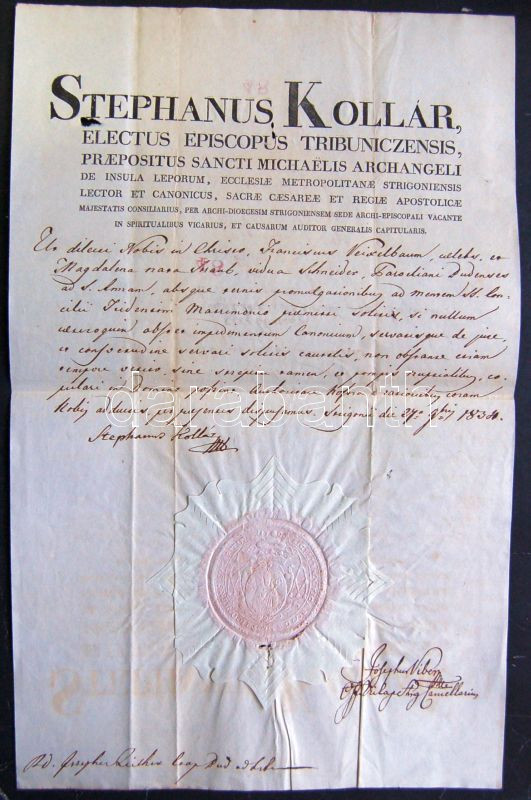 STEPHANUS KOLLÁR,
ELECTUS EPISCOPUS TRIBUNICZENSIS,
PRÆPOSITUS SANCTI MICHAËLIS ARCHANGELI
DE INSULA LEPORUM, ECCLESIÆ METROPOLITANÆ STRIGONIENSIS
LECTOR ET CANONICUS, SACRÆ CÆSAREÆ ET REGIÆ APOSTOLICÆ
MAJESTATIS CONSILIARIUS, PER ARCHI-DIOECESIM STRIGONIENSEM SEDE ARCHI-EPISCOPALI VACANTE
IN SPIRITUALIBUS VICARIUS, ET CAUSARUM AUDITOR GENERALIS CAPITULARIS.
dilecti Nobis in Christo, Franciscus Veixelbaum, cælebs, et
Magdalena nata vidua Schneider, Parochiani Dudenses
ad S. Annam, absque ternis promulgationibus ad mentem SS. Con-
cilii Tridentini Matrimonio præmitti solitis, si nullum
utrorumque obstet impedimentum Canonicum, servatisque de jure,
et consvetudine servari solitis cautelis, non obstante etiam
tempore vetito, sine strepitu tamen, et pompis nuptialibus, co-
pulari in Domino possint, Authoritate
Nobis dispensamus. Strigonii die 27 9bris 1834.
Stephanus Kollár
darabanth
Josephus
Cancellarius